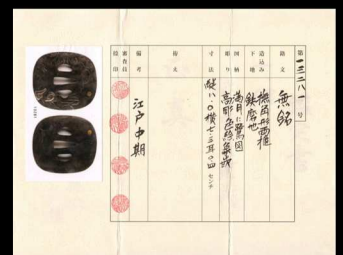 第一三二八一号
銘文 無銘
造込み 撫角形両櫃
下地 鉄磨地
図柄 満月に鷺図
彫り 高彫色絵象嵌
寸法 縦八・〇横七・三耳〇・四センチ
備考 江戸中期
審査員